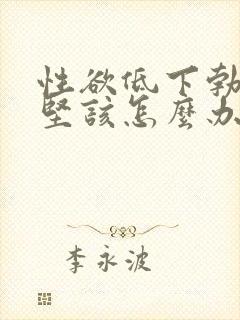 性欲低下勃
坚該怎麼办
李永波